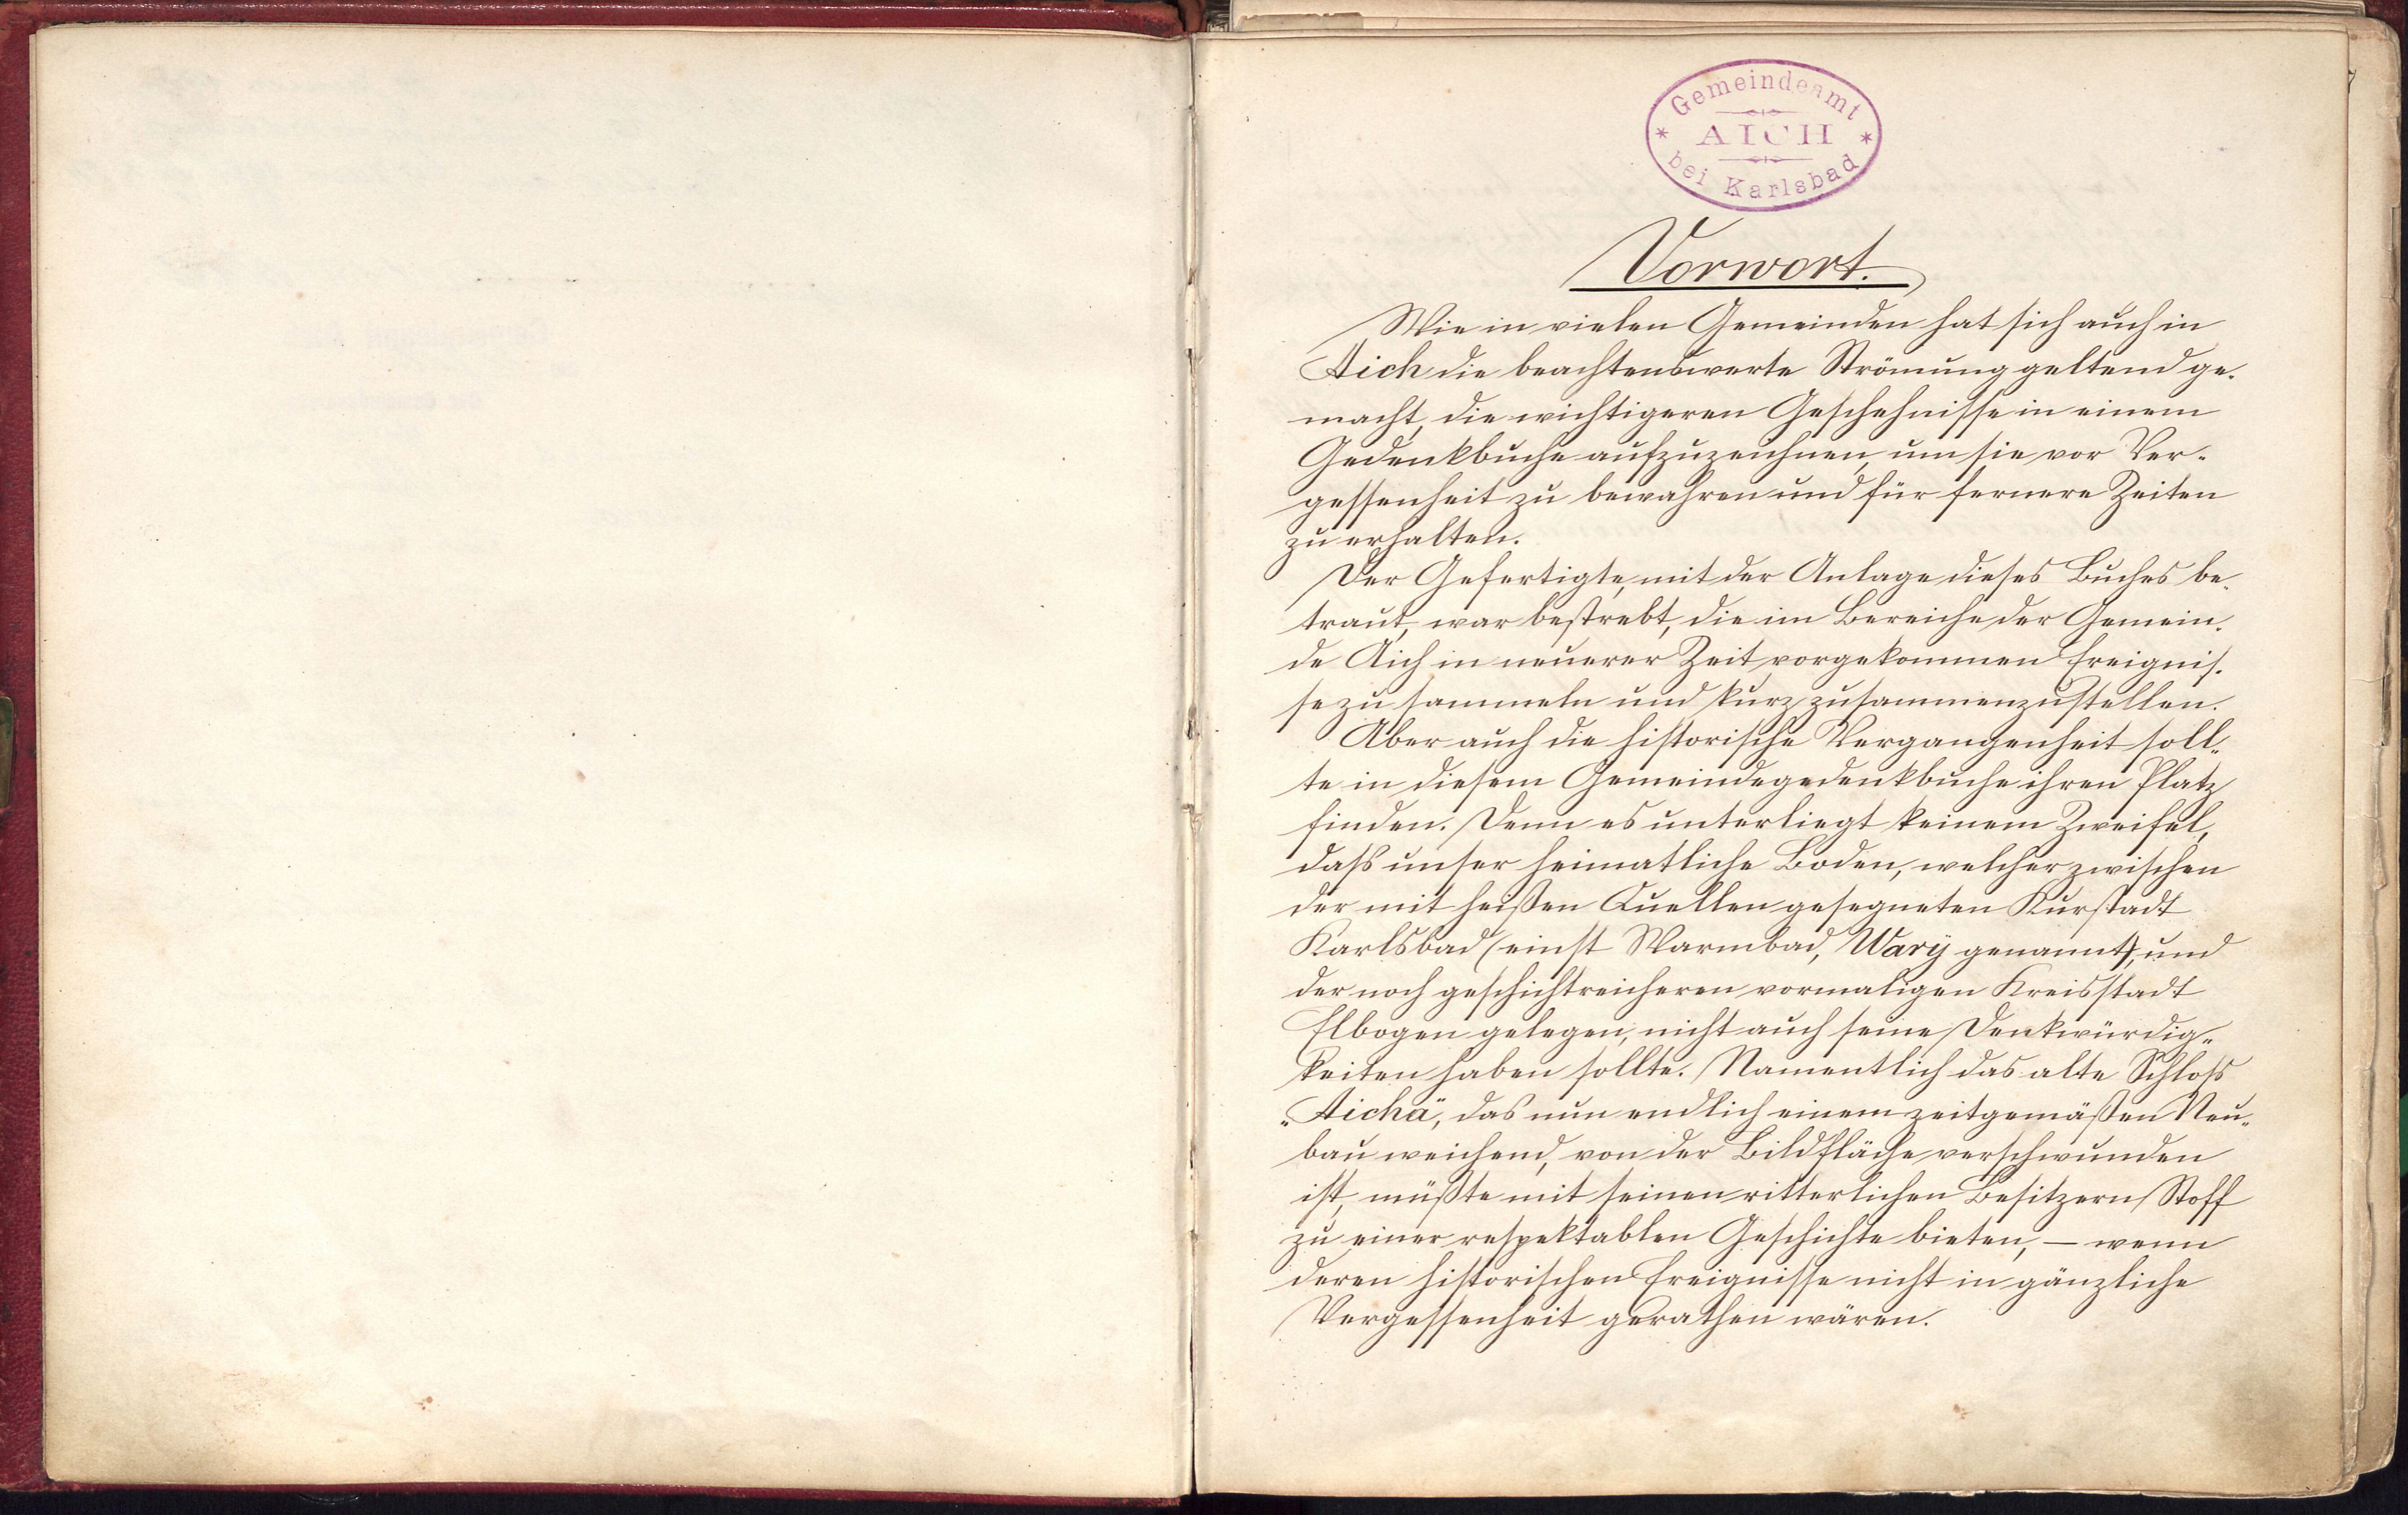 Gemeindeamt
AICH
bei Karlsbad
Vorwort.
Wie in vielen Gemeinden hat sich auch in
Aich die beachtenswerte Strömung geltend ge-
macht, die wichtigeren Geschehnisse in einem
Gedenkbuche aufzuzeichnen, um sie vor Ver-
gessenheit zu bewahren und für fernere Zeiten
zu erhalten.
Der Gefertigte, mit der Anlage dieses Buches be-
traut, war bestrebt, die im Bereiche der Gemein-
de Aich in neuerer Zeit vorgekommen Ereignis-
se zu sammeln und kurz zusammenzustellen.
Aber auch die historische Vergangenheit soll-
te in diesem Gemeindegedenkbuche ihren Platz
finden. Denn es unterliegt keinem Zweifel,
dass unser heimatliche Boden, welcher zwischen
der mit heißen Quellen gesegneten Kurstadt
Karlsbad (einst Warmbad, Warÿ genannt), und
der noch geschichtreicheren vormaligen Kreisstadt
Elbogen gelegen, nicht auch seine Denkwürdig-
keiten haben sollte. Namentlich das alte Schloss
„Aicha", das nun endlich einem zeitgemäßen Neu-
bau weichend, von der Bildfläche verschwunden
ist, müßte mit seinen ritterlichen Besitzern Stoff
zu einer respektablen Geschichte bieten, – wenn
deren historischen Ereignisse nicht in gänzliche
Vergessenheit gerathen wären.